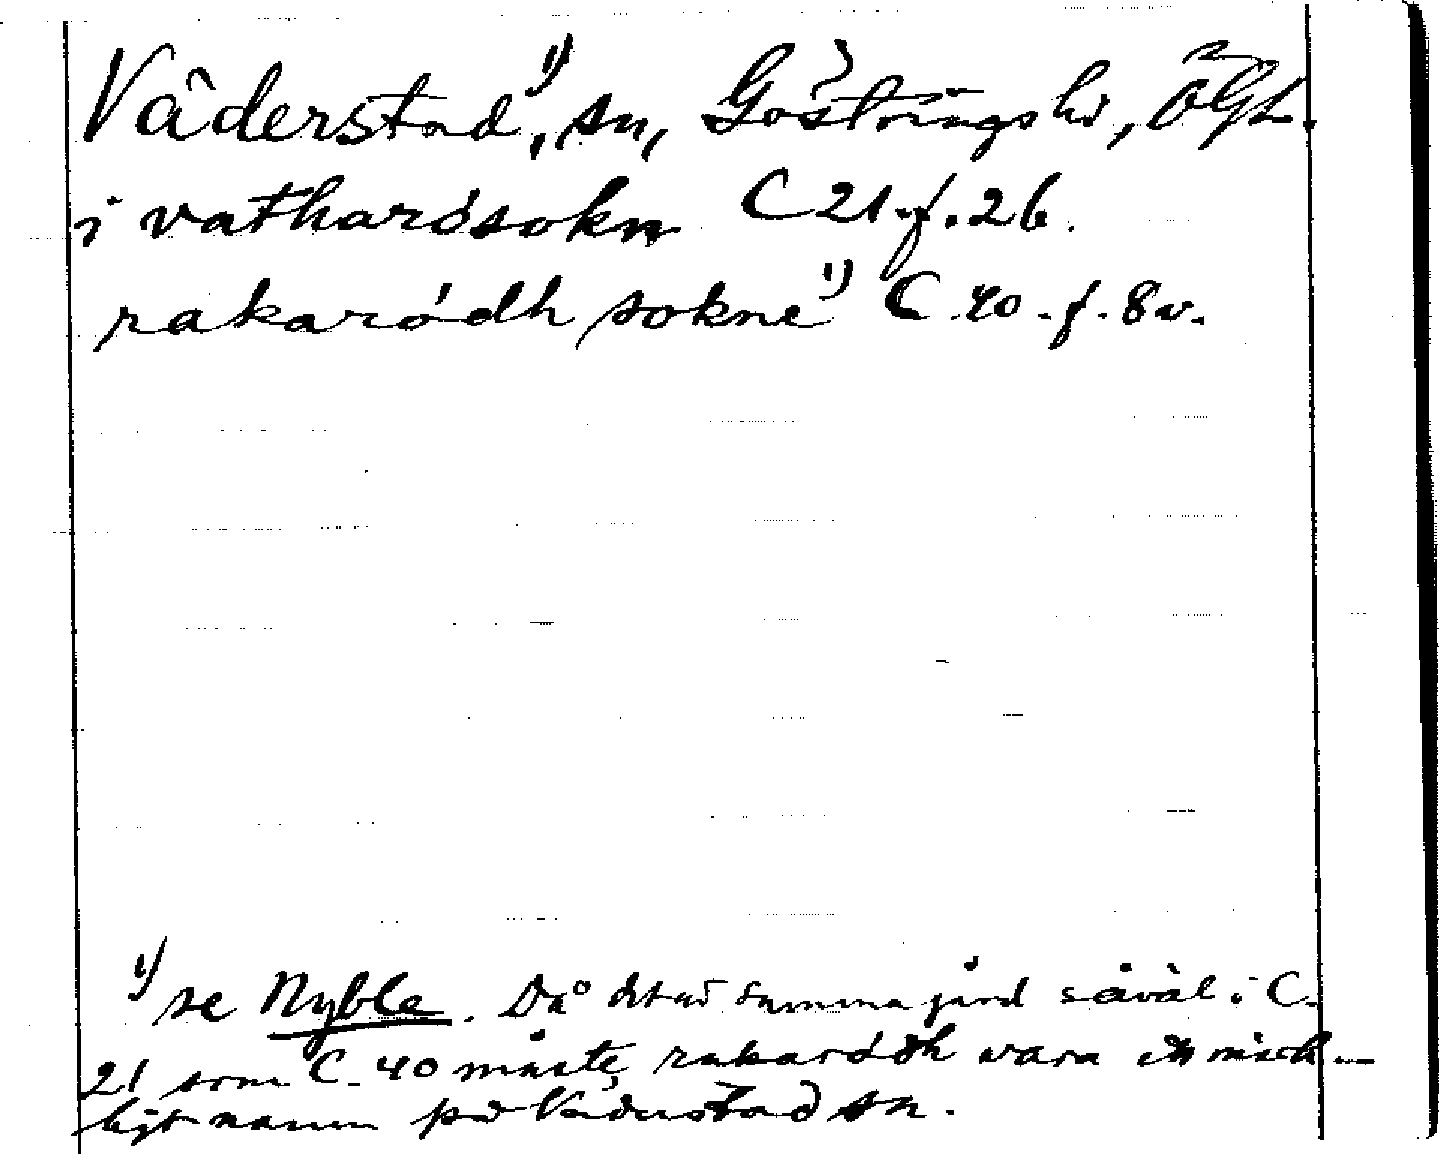 Väderstad¹⁾, sn, Göstrings hd, ÖGL.
i vatharósokn C 21. f. 26.
rakaródh sokne¹⁾ C 40. f. 8v.
¹⁾ se Nyble. Då det är samma jord såväl i C.
21 som C. 40 måste rakaródh vara ett märk-
ligt namn på Väderstad sn.